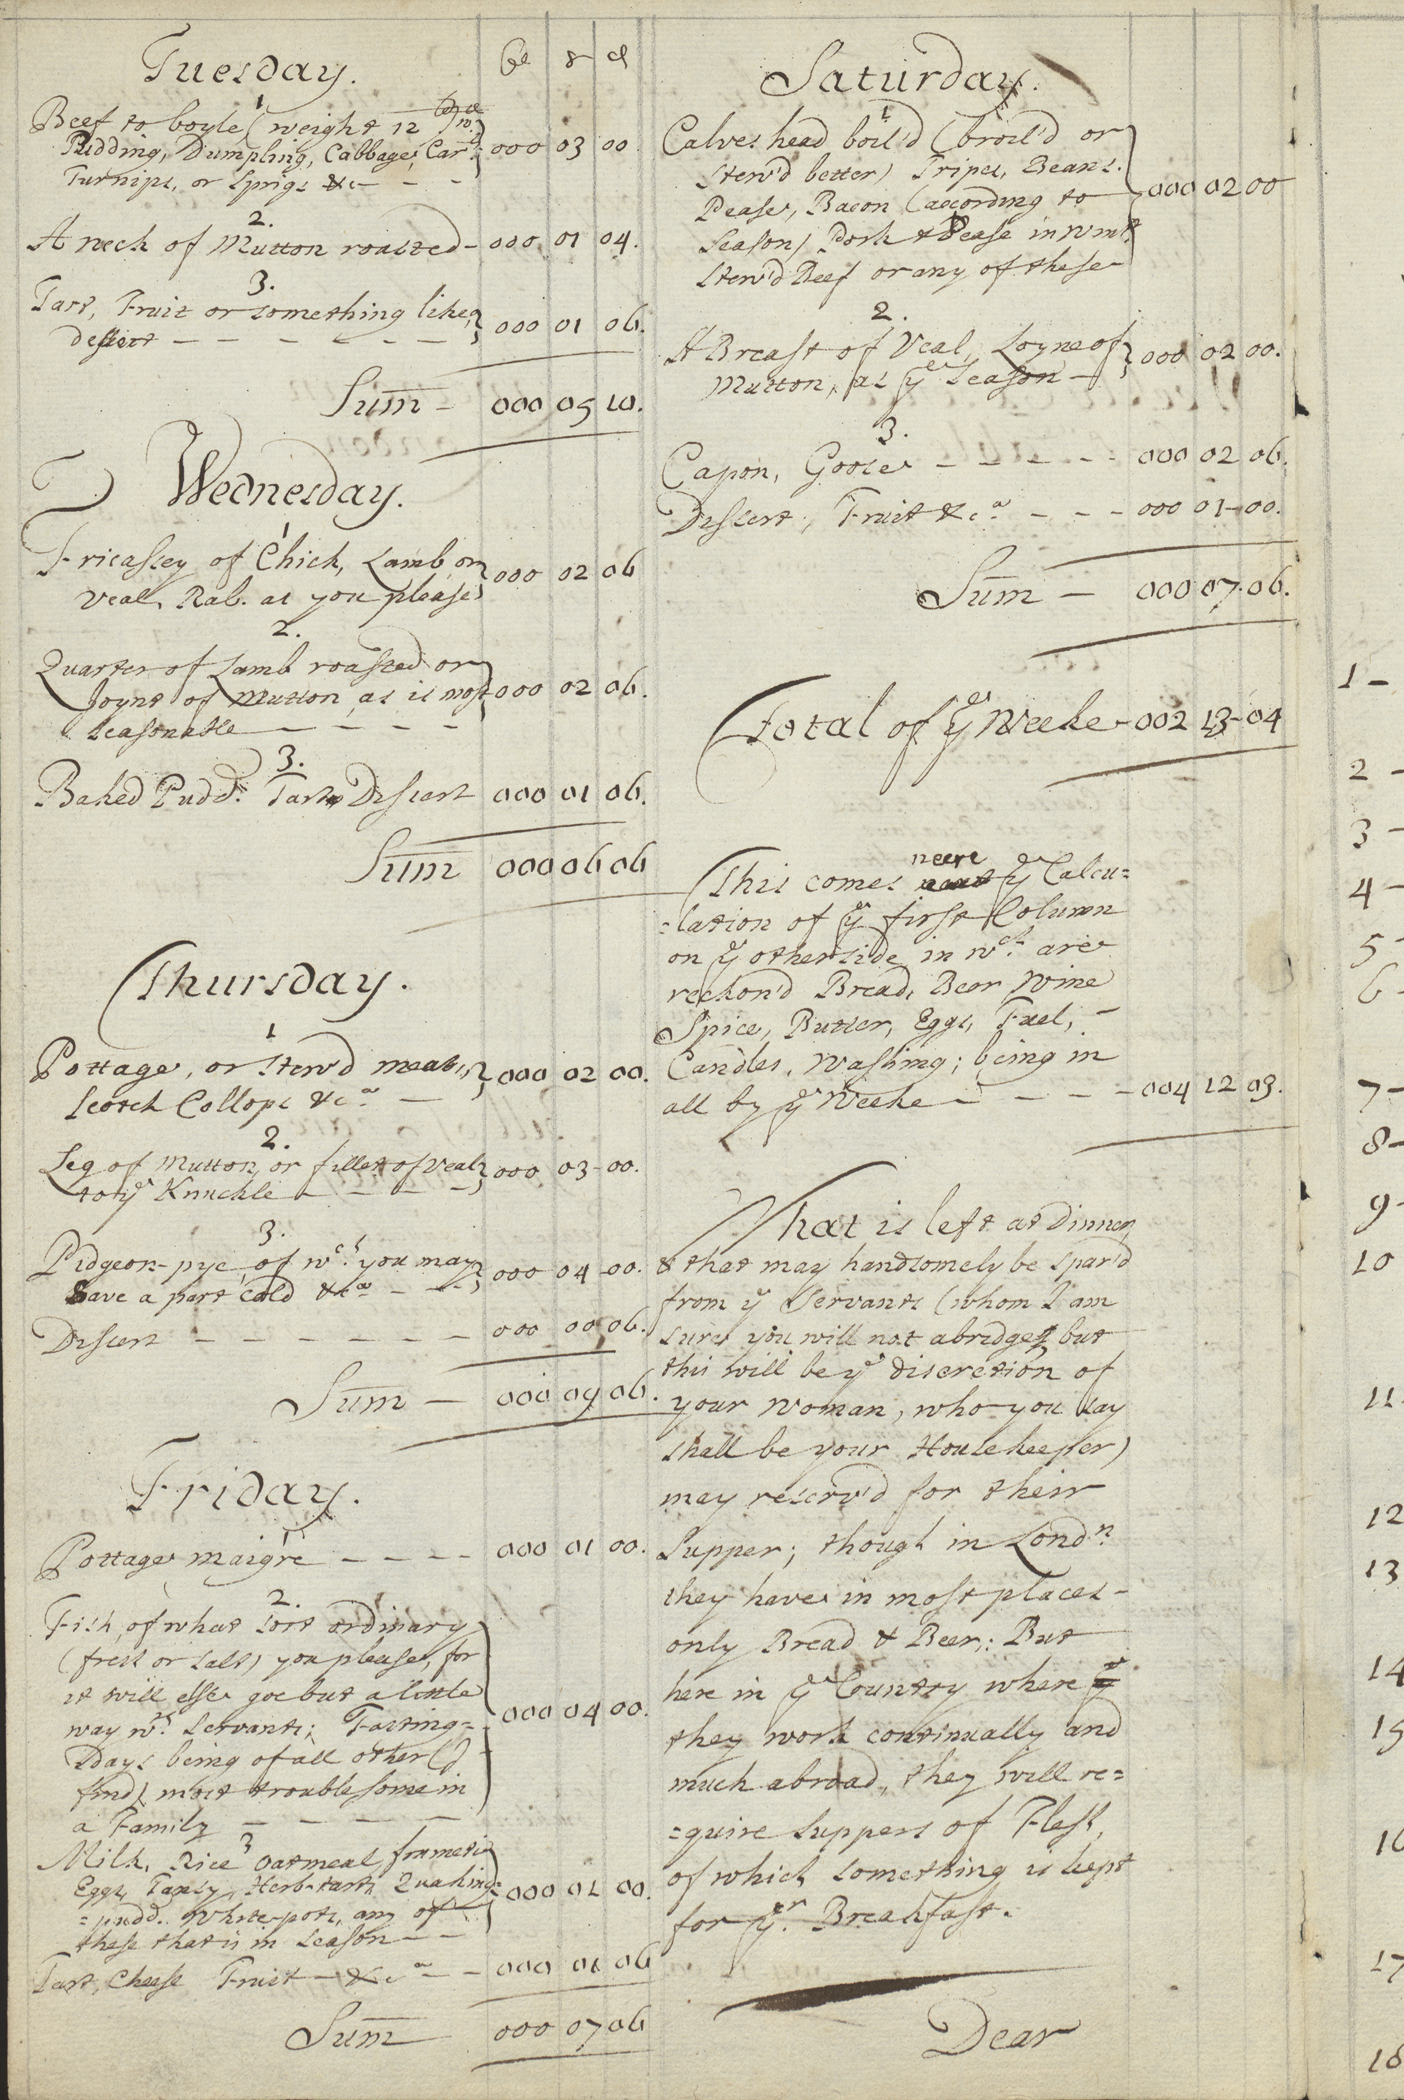 Tuesday.
li s d
1
Beef to boyle (weight 12
Pudding, Dumpling, Cabbage, Car: 000 03 00
Turnips, or Sprigs &c - -
2.
A neck of Mutton roasted - 000 01 04.
3.
Tart, Fruit or something like, 000 01 06.
dessert - - - - - -
Sum - 000 05 10.
Wednesday.
1
Fricassey of Chick, Lamb, or 000 02 06
Veal, Rab. as you please
2.
Quarter of Lamb roasted or
Joynt of Mutton, as is most 000 02 06.
Seasonable - - - -
3.
Baked Pudd: Tarts Dessert 000 01 06.
Sum 000 06 06
Thursday.
1
Pottage, or Stew'd meats, 000 02 00.
Scotch Collops &ca -
2.
Leg of Mutton, or fillet of Veal 000 03 00.
to ye Knuckle - - - -
3.
Pidgeon-pye, of wch you may 000 04 00.
Save a part Cold &ca - - -
Dessert - - - - - - - 000 00 06.
Sum - 000 09 06.
Friday.
1
Pottage maigre - - - - 000 01 00.
2.
Fish, of what sort ordinary
(fresh or salt) you please, for
it will else goe but a little
way wth Servants; Fasting= 000 04 00.
Days being of all other (I
find) most troublesome in
a Family - - - - -
3
Milk, Rice Oatmeal frumeti
Eggs, Tansy, Herb-tart, Quaking= 000 01 00.
=pudd. White-pots, any of
these that is in Season - -
Tart, Cheese Fruit - &ca - - 000 01 06
Sum 000 07 06
Saturday.
1
Calves head boil'd (broil'd or
Stew'd better) Tripes, Beans.
Pease, Bacon (according to 000 02 00
Season) Pork & Pease in Wintr.
Stew'd Beef or any of these
2.
A Breast of Veal, Loyne of 000 02 00.
Mutton, as ye Season -
3.
Capon, Goose - - - - - 000 02 06.
Dessert, Fruit &ca - - - 000 01 00.
Sum - 000 07 06.
Total of ye Weeke - 002 13 04
neere
This comes ye Calcu=
=lation of ye first Column
on ye other side in wch are
reckon'd Bread, Beer Wine
Spice, Butter, Eggs, Fuel, -
Candles, Washing; being in
all by ye Weeke - - - - 004 12 03.
What is left at Dinner,
& that may handsomely be spar'd
from ye Servants (whom I am
sure you will not abridge, but
this will be ye discretion of
your Woman, who you say
shall be your Housekeeper)
may reserv'd for their
Supper; though in Londn.
they have in most places -
only Bread & Beer: But
here in ye Country where
they work continually and
much abroad, they will re=
=quire suppers of Flesh,
of which something is kept
for yr. Breakfast.
Dear
1 -
2 -
3 -
4 -
5 -
6 -
7 -
8 -
9 -
10
11
12
13
14
15
16
17
18